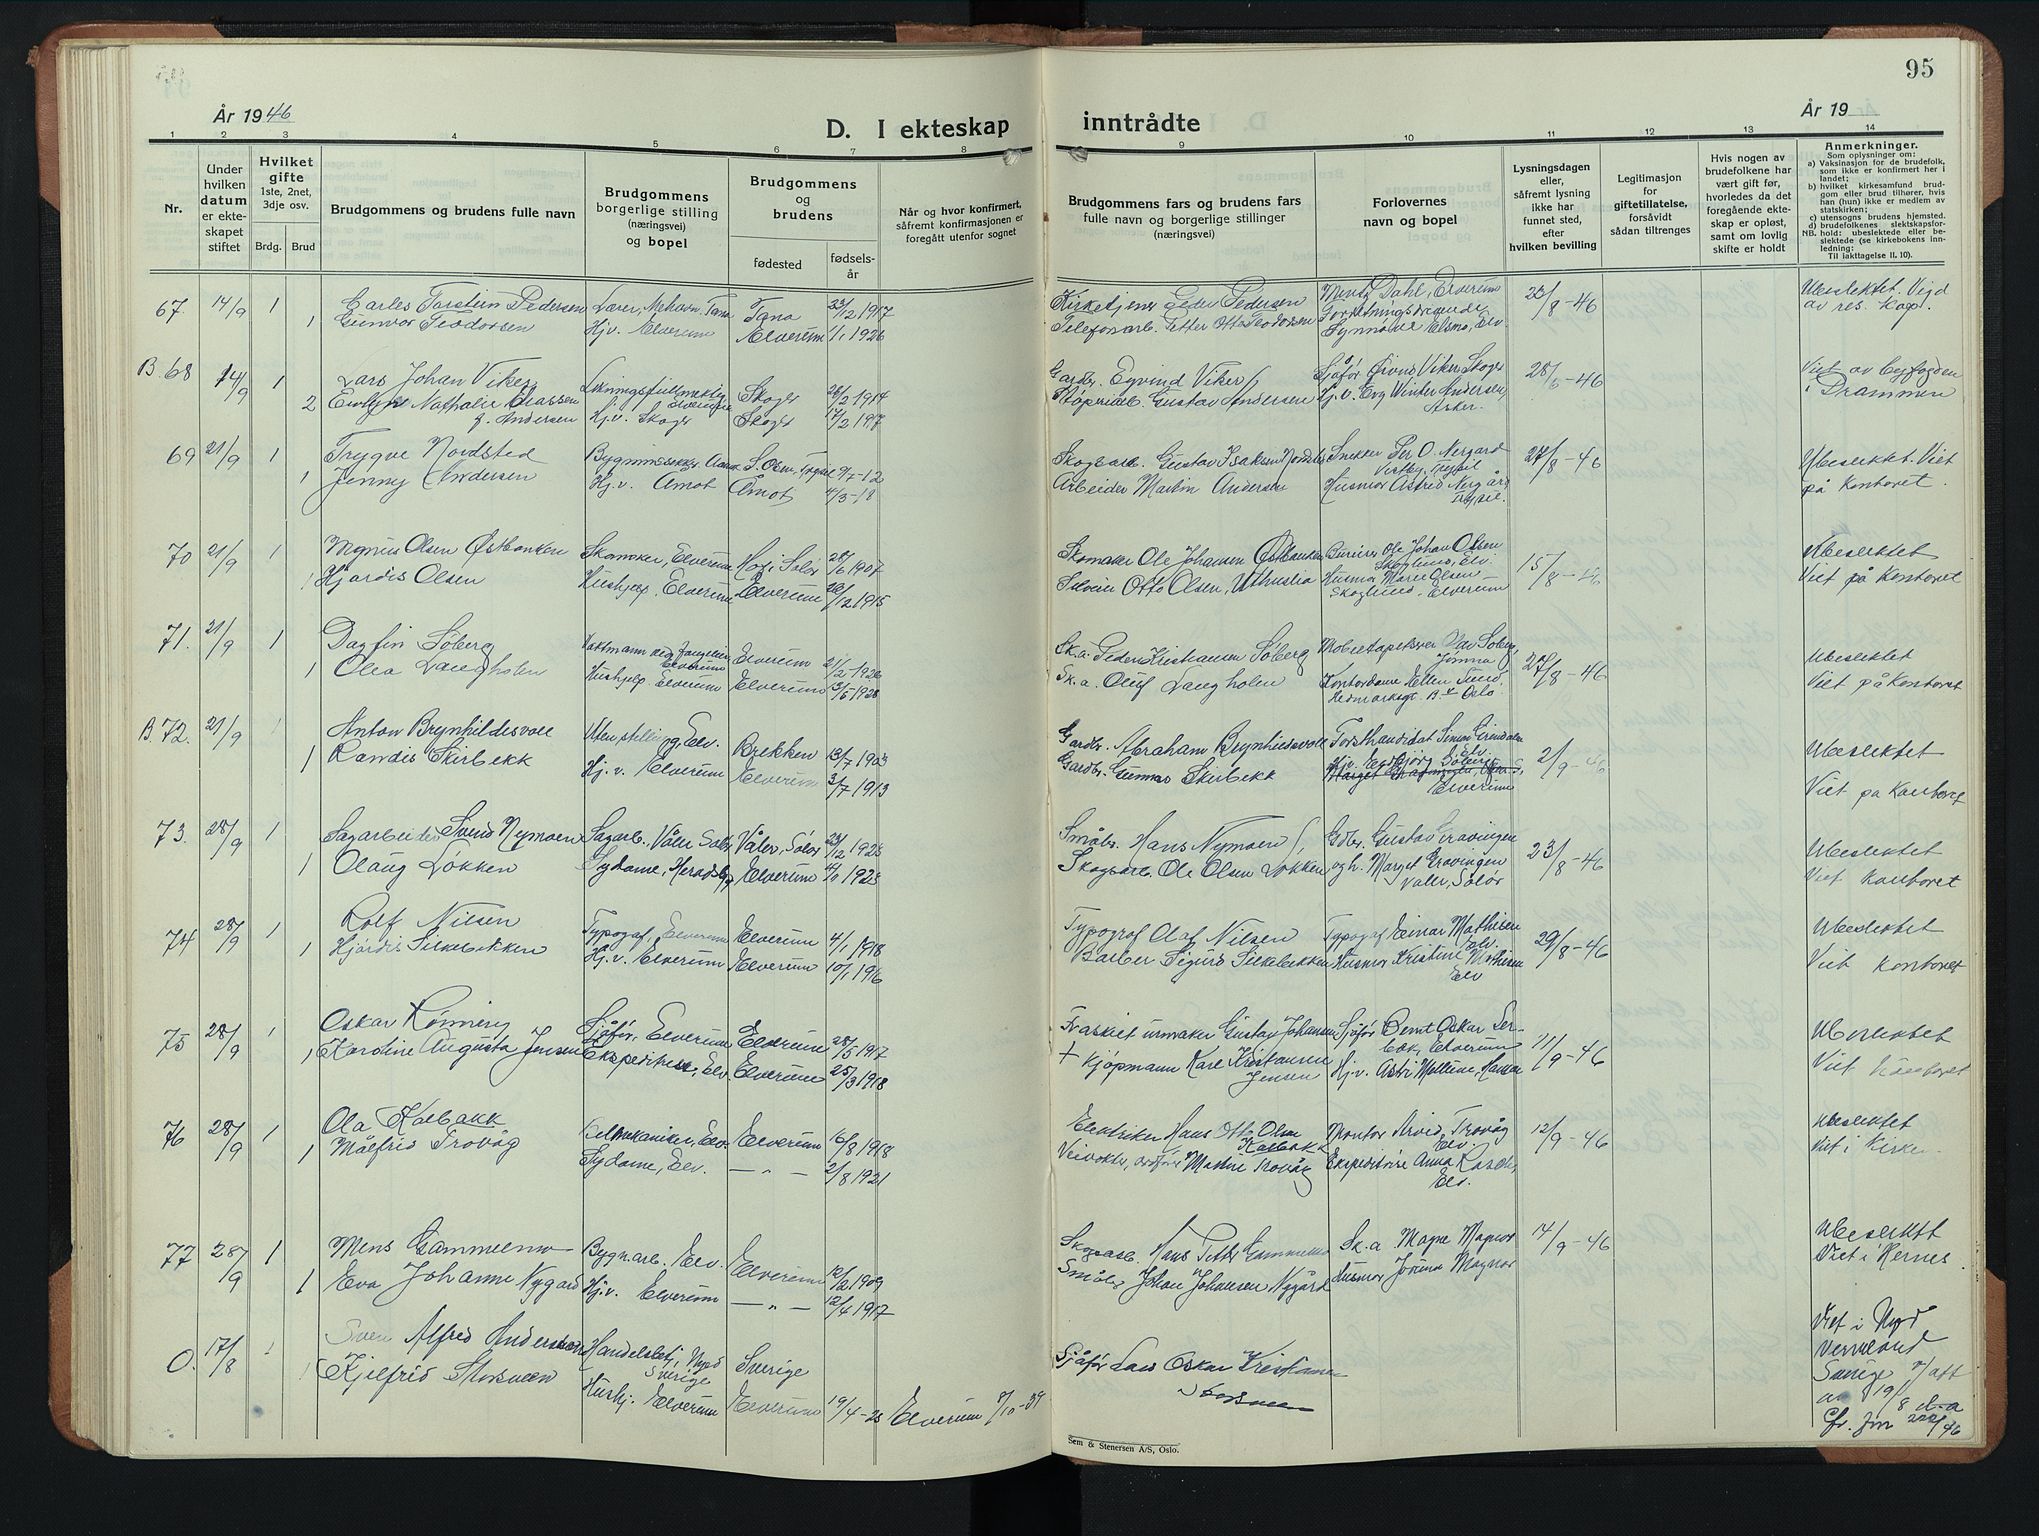 95
År 1946
D. I ekteskap
inntrådte
År 19
1 2 3 4 5 6 7 8 9 10 11 12 13 14
Nr.
Under hvilken datum er ekteskapet stiftet
Hvilket gifte
1ste, 2net, 3dje osv.
Brdg. Brud
Brudgommens og brudens fulle navn
Brudgommens borgerlige stilling (næringsvei) og bopel
Brudgommens og brudens
fødested
fødselsår
Når og hvor konfirmert, såfremt konfirmasjonen er foregått utenfor sognet
Brudgommens fars og brudens fars
fulle navn og borgerlige stillinger
(næringsvei)
Forlovernes
navn og bopel
Lysningsdagen eller, såfremt lysning ikke har funnet sted, efter hvilken bevilling
Legitimasjon for giftetillatelse, forsåvidt sådan tiltrenges
Hvis nogen av brudefolkene har vært gift før, hvorledes da det foregående ekteskap er opløst, samt om lovlig skifte er holdt
Anmerkninger.
Som oplysninger om:
a) Vaksinasjon for de brudefolk, som ikke er konfirmert her i landet;
b) hvilket kirkesamfund brudgom eller brud tilhører, hvis han (hun) ikke er medlem av statskirken;
c) utensogns brudens hjemsted.
d) brudefolkenes slektskapsforhold: ubeslektede eller beslektede (se kirkebokens innledning:
NB.
Til iakttagelse II. 10).
67. 14/9 1 Carles Torstein Pedersen Lærer, Mehavn. Tana Tana 23/2 1917 Kirketjener Peder Pedersen Mentz Dahl, Elverum 23/8-46 Ubeslektet. Vigd
1 Gunvor Teodorsen Hj.v. Elverum Elverum 1/1 1926 Telefonarb. Petter Otto Teodorsen Forretningsdrivende Synnøve Elsmo, Elv. av res. kap.
B. 68 14/9 1 Lars Johan Viker Ligningsfullmektig Elverum Skoger 26/2 1914 Gardbr. Eyvind Viker Sjåfør Øivind Viker, Skoger 28/8-46 Viet av byfogden
2 Evelyn Nathalie Classen f. Andersen Hj.v. Skoger Skoger 17/2 1917 Støperiarb. Gustav Andersen Hj.v. Evy Winter Andersen, Asker i Drammen
69 21/9 1 Trygve Nordsted S. Osen, Trysil 9/7-12 Skogsarb. Gustav Isaksen Snekker Per O. Nergard 27/8-46 Ubeslektet. Viet
1 Jenny Andersen Hj.v. Åmot Åmot 4/3-18 Arbeider Martin Andersen Husmor Astrid Nergård Trysil. på kontoret.
70 21/9 1 Magnus Olsen Østbanken Skomaker, Elverum Hof, Solør 28/6 1907 Skomaker Ole Johansen Østbanken Ole Johan Olsen Skoglund, Elv. 15/8-46 Ubeslektet
1 Hjørdis Olsen Hushjelp, Elverum Elverum 26/12 1915 Otto Olsen, Uthuslia Husmor Marie Olsen Skoglund, Elverum Viet på kontoret
71. 21/9 1 Dagfin Søberg Elverum Elverum 21/2 1926 Sk.a. Peder Kristiansen Søberg Møbeltapetserer Søberg, Jømna 27/8-46 Ubeslektet
1 Olea Langholen Hushjelp Elverum Elverum 13/5 1928 Sk.a. Oluf Langholen Kontordame Ellen Sund Hedmarksgt. Oslo Viet på kontoret
B. 72. 21/9 Anton Brynhildsvoll Uten stilling, Elv. Brekken 13/7 1903 Gardbr. Abraham Brynhildsvoll Forstkandidat Simen Elv. 2/9-46 Ubeslektet
1 Randis Skirbekk Hj.v. Elverum Elverum 3/7 1913 Gardbr. Gunnar Skirbekk Hj.v. Elverum Viet på kontoret
73. 28/9 1 Sagarbeider Svend Nymoen Sagarb., Våler Solør Våler, Solør 23/12 1925 Småbr. Hans Nymoen Gdbr. Gustav Gravingen 23/8-46 Ubeslektet
1 Olaug Løkken Sydame, Elverum 1925 Skogsarb. Ole Olsen Løkken og h. Marget Gravingen Våler, Solør Viet kontoret
74 28/9 1 Rolf Nilsen Typograf, Elverum Elverum 4/1 1918 Typograf Olaf Nilsen Typograf Einar Mathisen Elv. 29/8-46 Ubeslektet
1 Hjørdis Silkebekken Hj.v. Elverum Elverum 10/1 1916 Barber Sigurd Silkebekken Husmor Kristine Mathisen Elv Viet kontoret
75 28/9 1 Oskar Rønning Sjåfør, Elverum Elverum 28/5 1917 Fraskilt urmaker Gustav Johansen Sjåfør Bernt Oskar Elverum 11/9-46 Ubeslektet
1 Karoline Augusta Jensen Ekspeditrise, Elv. Elverum 25/3 1918 + Kjøpmann Karl Kristiansen Jensen Hj.v. Viet kontoret
76 28/9 1 Ola Kalbakk Bilmekaniker, Elv. Elverum 16/8 1918 Elektriker Hans Otto Olsen Kalbakk Montør Arvid Trovåg Elv. 12/9-46 Ubeslektet
1 Målfrid Trovåg Sydame, Elv. — " — 2/8 1921 Trovåg Ekspeditrise Anna Elv. Viet i kirken.
77 28/9 1 Mens Gammelmo Bygn.arb. Elv. Elverum 12/2 1909 Skogsarb. Hans Petter Gammelmo Sk.a Magne Magnor 14/9-46 Ubeslektet
1 Eva Johanne Nygard Hj.v. Elverum — " — 12/4 1917 Småbr. Johan Johansen Nygård Husmor Jorunn Magnor Viet i Hernes
O. 17/8 1 Sven Alfred Andersson Sverige Sverige Viet i
1 Kjelfrid Storsveen Hushj. Elverum Elverum 19/4-25 Elverum 8/10-39 Sjåfør Lars Oskar Kristiansen Storsveen Sverige
Sem & Stenersen A/S, Oslo.